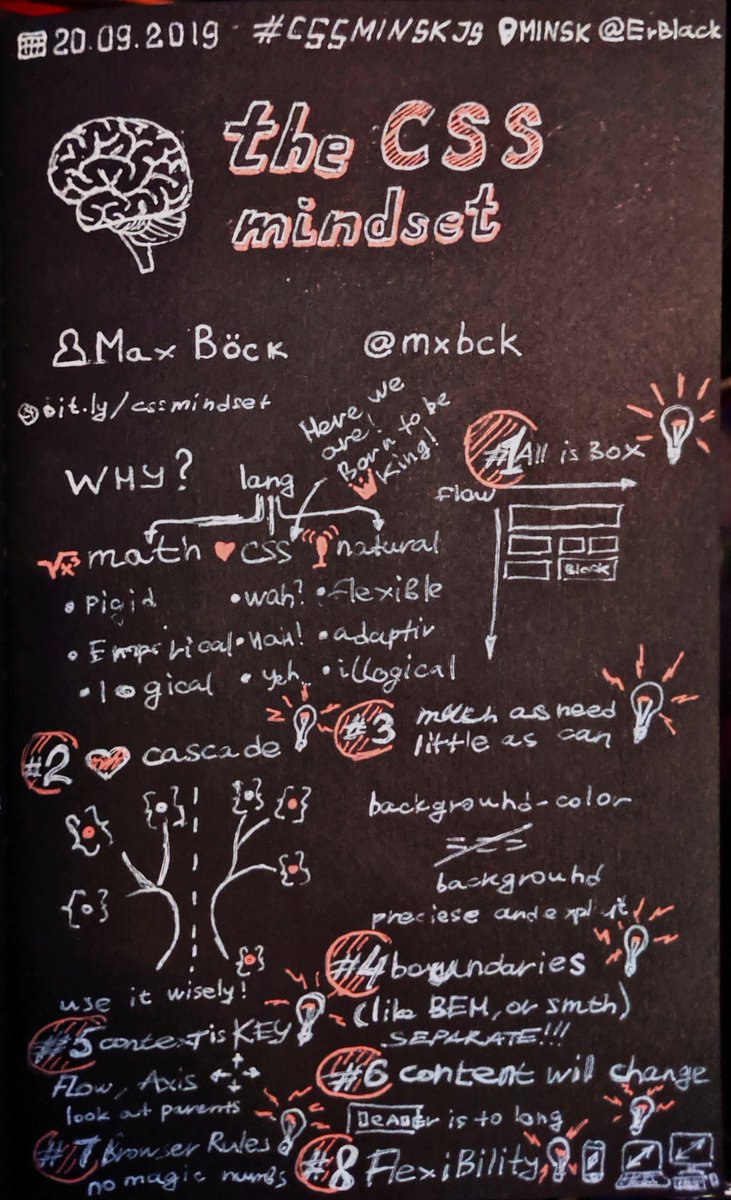 20.09.2019 #CSSMINSKJS MINSK @ErBlack
the CSS
mindset
Max Böck @mxbck
bit.ly/cssmindset
Here we
are!
Born to be
King!
WHY?
lang
math CSS natural
√x³
• Rigid
• Empirical
• logical
• wah?
• Nah!
• yeh
• flexible
• adaptiv
• illogical
#1 All is Box
Flow
Block
#2 cascade
{•} {•} {•} {•}
{•} {•}
{•}
use it wisely!
#3 much as need
little as can
background-color
===
background
preciese and explicit
#4 boundaries
(like BEM, or smth)
SEPARATE!!!
#5 context is KEY
Flow, Axis
look at parents
#6 content will change
HEADER is to long
#7 Browser Rules
no magic numbs
#8 FlexiBility